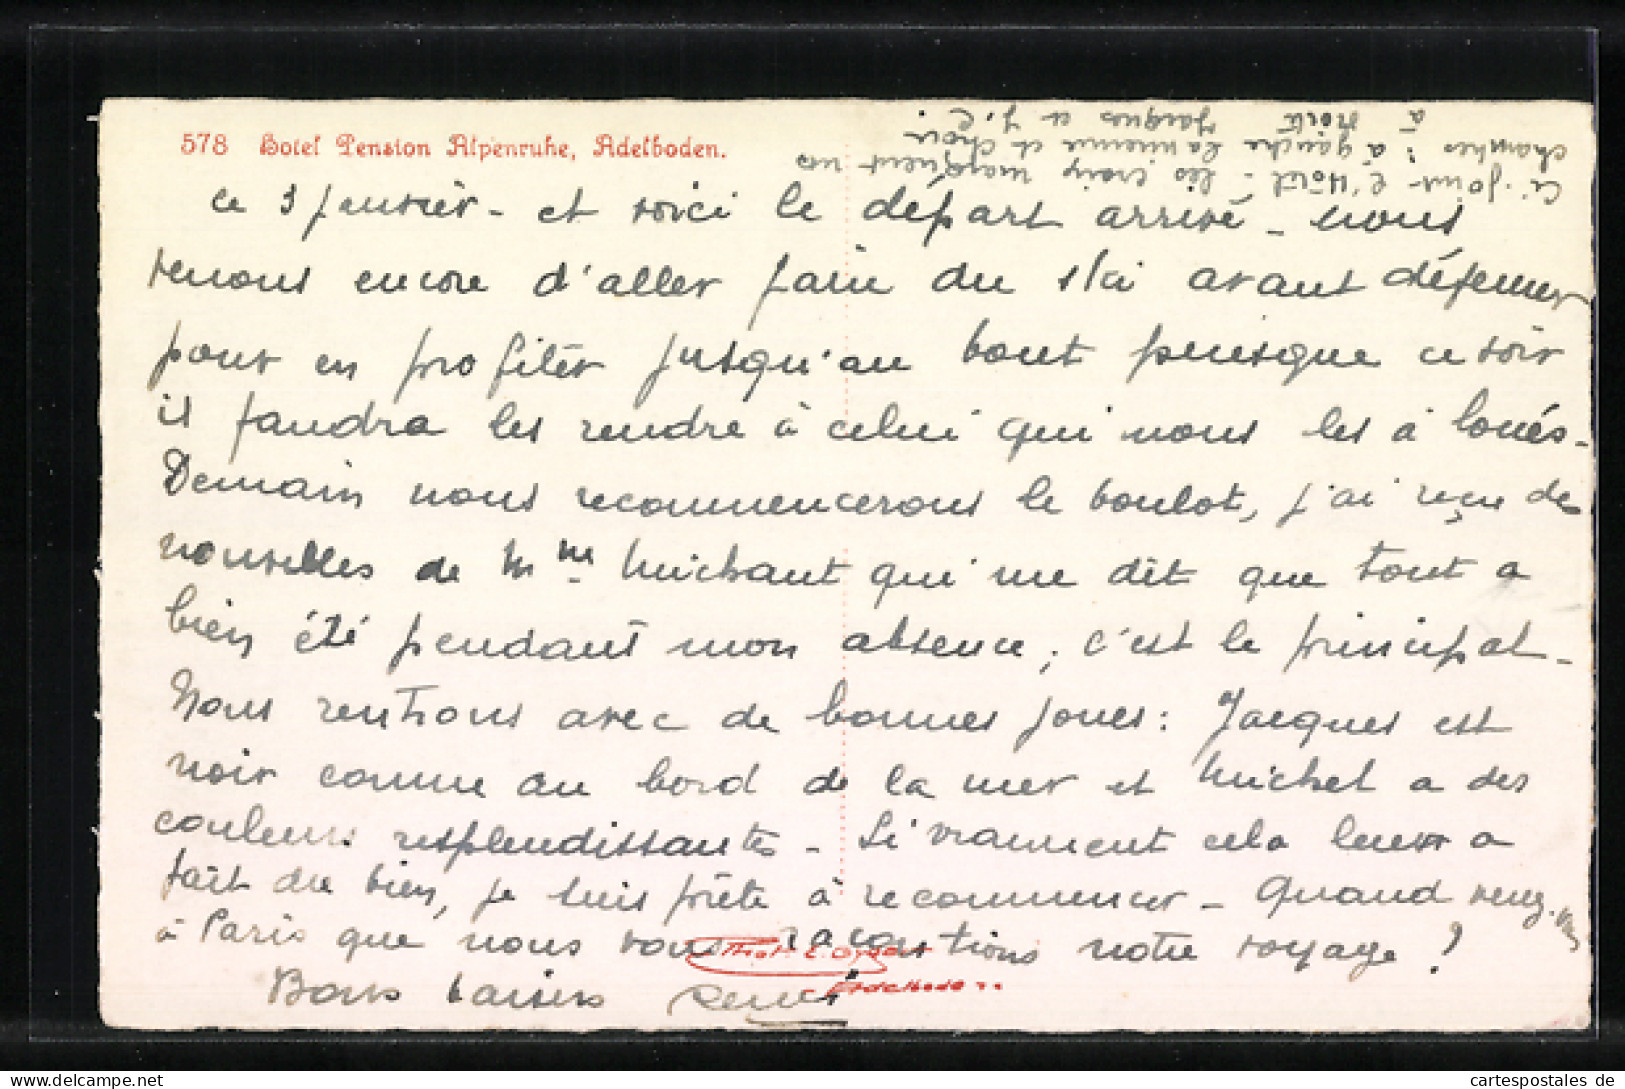 578 Hotel Pension Alpenruhe, Adelboden.
Ci-joint l'Hôtel - les croix marquent nos
chambres : à gauche la mienne et
à droite Jacques et
ce 3 janvier - et voici le départ arrivé - nous
venons encore d'aller faire du ski avant déjeuner
pour en profiter jusqu'au bout puisque ce soir
il faudra les rendre à celui qui nous les a loués -
Demain nous recommencerons le boulot, j'ai reçu des
nouvelles de Mme Michaut qui me dit que tout a
bien été pendant mon absence, c'est le principal -
Nous rentrons avec de bonnes joues : Jacques est
noir comme au bord de la mer et Michel a des
couleurs resplendissantes - Si vraiment cela leur a
fait du bien, je suis prête à recommencer - Quand venez-vous
à Paris que nous vous racontions notre voyage ?
Bons baisers
Phot. E. Gyger
Adelboden
cartespostales de